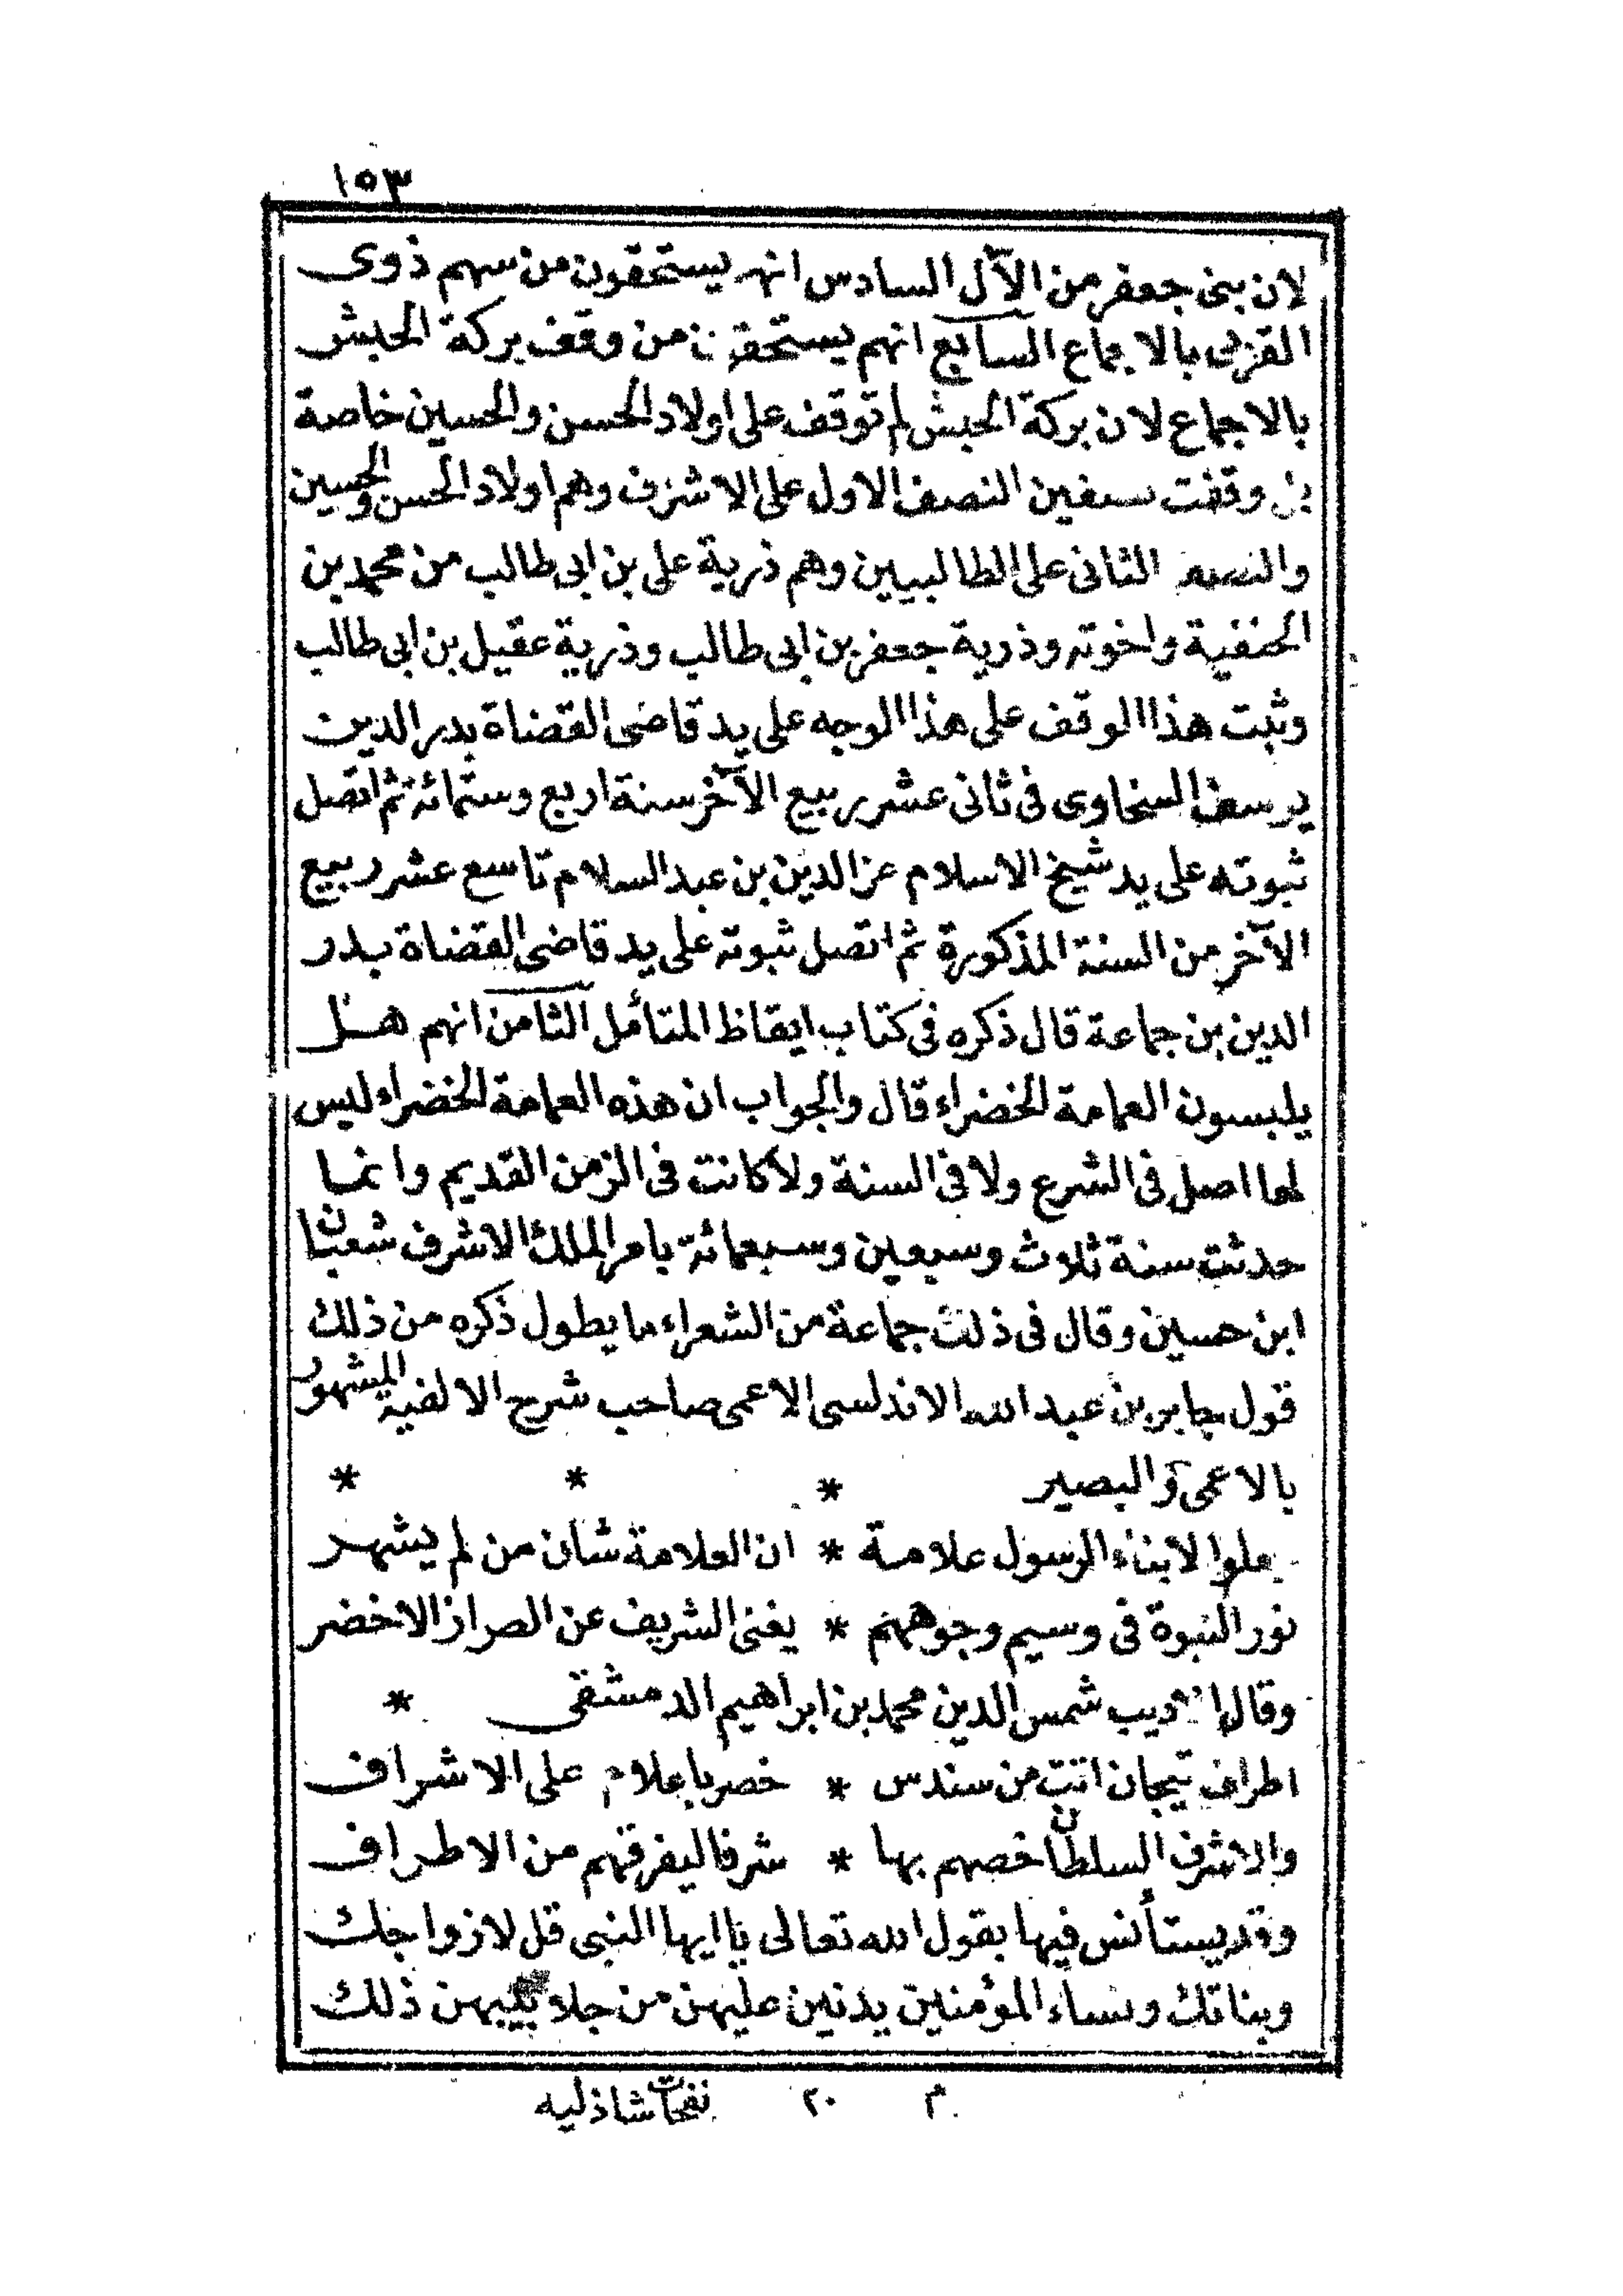 ١٥٣
لان بنى جعفر من الآل السادس انهم يستحقون من سهم ذوى
القربى بالاجماع السابع انهم يستحقون من وقف بركة الحبش
بالاجماع لان بركة الحبش لم توقف على اولاد الحسن والحسين خاصة
بل وقفت نصفين النصف الاول على الاشرف وهم اولاد الحسن والحسين
والنصف الثانى على الطالبيين وهم ذرية على بن ابى طالب من محمد بن
الحنفية واخوته وذرية جعفر بن ابى طالب وذرية عقيل بن ابى طالب
وثبت هذا الوقف على هذا الوجه على يد قاضى القضاة بدر الدين
يوسف السنجاوى فى ثانى عشر ربيع الآخر سنة اربع وستمائة ثم اتصل
ثبوته على يد شيخ الاسلام عز الدين بن عبد السلام تاسع عشر ربيع
الآخر من السنة المذكورة ثم اتصل ثبوته على يد قاضى القضاة بدر
الدين بن جماعة قال ذكره فى كتاب ايقاظ المتأمل الثامن انهم هل
يلبسون العمامة الخضراء قال والجواب ان هذه العمامة الخضراء ليس
لها اصل فى الشرع ولا فى السنة ولا كانت فى الزمن القديم وانما
حدثت سنة ثلاث وسبعين وسبعمائة بامر الملك الاشرف شعبان
ابن حسين وقال فى ذلك جماعة من الشعراء ما يطول ذكره من ذلك
قول جابر بن عبد الله الاندلسى الاعمى صاحب شرح الالفية المشهور
بالاعمى والبصير * * *
جعلوا لابناء الرسول علامة * ان العلامة شان من لم يشهر
نور النبوة فى وسيم وجوههم * يغنى الشريف عن الطراز الاخضر
وقال الاديب شمس الدين محمد بن ابراهيم الدمشقى *
اطراف تيجان اتت من سندس * خضر باعلام على الاشراف
والاشرف السلطان خصهم بها * شرفا ليفرقهم من الاطراف
وقد يستأنس فيها بقول الله تعالى يا ايها النبى قل لازواجك
وبناتك ونساء المؤمنين يدنين عليهن من جلابيبهن ذلك
م ٢٠ نفحات شاذليه